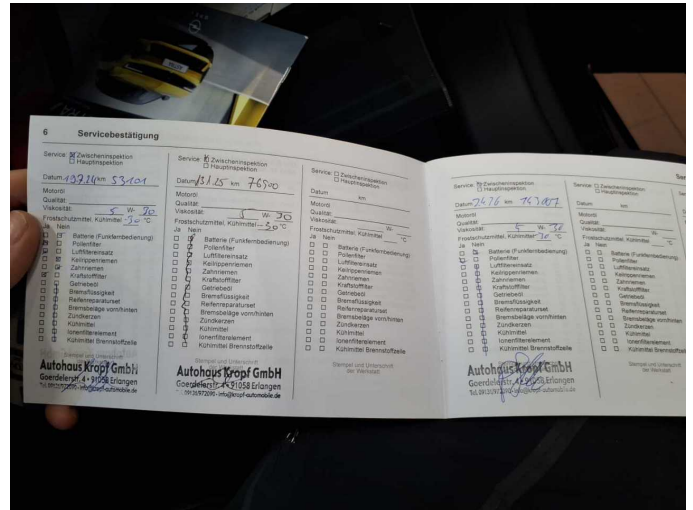 6 Servicebestätigung
Service: ☒ Zwischeninspektion
☐ Hauptinspektion
Datum km 53101
Motoröl
Qualität:
Viskosität: 5 W- 30
Frostschutzmittel, Kühlmittel -30 °C
Ja Nein
Batterie (Funkfernbedienung)
Pollenfilter
Luftfiltereinsatz
Keilrippenriemen
Zahnriemen
Kraftstofffilter
Getriebeöl
Bremsflüssigkeit
Reifenreparaturset
Bremsbeläge vorn/hinten
Zündkerzen
Kühlmittel
Ionenfilterelement
Kühlmittel Brennstoffzelle
Stempel und Unterschrift
Autohaus Kropf GmbH
Goerdelerstr. 4 • 91058 Erlangen
Tel. 09131/972090 • info@kropf-automobile.de
Service: ☒ Zwischeninspektion
☐ Hauptinspektion
Datum km
Motoröl
Qualität:
Viskosität: 5 W- 30
Frostschutzmittel, Kühlmittel -30 °C
Ja Nein
Batterie (Funkfernbedienung)
Pollenfilter
Luftfiltereinsatz
Keilrippenriemen
Zahnriemen
Kraftstofffilter
Getriebeöl
Bremsflüssigkeit
Reifenreparaturset
Bremsbeläge vorn/hinten
Zündkerzen
Kühlmittel
Ionenfilterelement
Kühlmittel Brennstoffzelle
Stempel und Unterschrift
Autohaus Kropf GmbH
Goerdelerstr. 4 • 91058 Erlangen
09131/972090 • info@kropf-automobile.de
Service: ☐ Zwischeninspektion
☐ Hauptinspektion
Datum km
Motoröl
Qualität:
Viskosität: W-
Frostschutzmittel, Kühlmittel °C
Ja Nein
Batterie (Funkfernbedienung)
Pollenfilter
Luftfiltereinsatz
Keilrippenriemen
Zahnriemen
Kraftstofffilter
Getriebeöl
Bremsflüssigkeit
Reifenreparaturset
Bremsbeläge vorn/hinten
Zündkerzen
Kühlmittel
Ionenfilterelement
Kühlmittel Brennstoffzelle
Stempel und Unterschrift
der Werkstatt
Service: ☒ Zwischeninspektion
☐ Hauptinspektion
Datum km
Motoröl
Qualität:
Viskosität: 5 W- 30
Frostschutzmittel, Kühlmittel °C
Ja Nein
Batterie (Funkfernbedienung)
Pollenfilter
Luftfiltereinsatz
Keilrippenriemen
Zahnriemen
Kraftstofffilter
Getriebeöl
Bremsflüssigkeit
Reifenreparaturset
Bremsbeläge vorn/hinten
Zündkerzen
Kühlmittel
Ionenfilterelement
Kühlmittel Brennstoffzelle
Stempel und Unterschrift
Autohaus Kropf GmbH
Goerdelerstr. 4 • 91058 Erlangen
Tel. 09131/972090 • info@kropf-automobile.de
Service: ☐ Zwischeninspektion
☐ Hauptinspektion
Datum km
Motoröl
Qualität:
Viskosität:
Frostschutzmittel, Kühlmittel
Ja Nein
Batterie (Funkfernbedienung)
Pollenfilter
Luftfiltereinsatz
Keilrippenriemen
Zahnriemen
Kraftstofffilter
Getriebeöl
Bremsflüssigkeit
Reifenreparaturset
Bremsbeläge vorn/hinten
Zündkerzen
Kühlmittel
Ionenfilterelement
Kühlmittel Brennstoffzelle
Stempel und Unterschrift
der Werkstatt